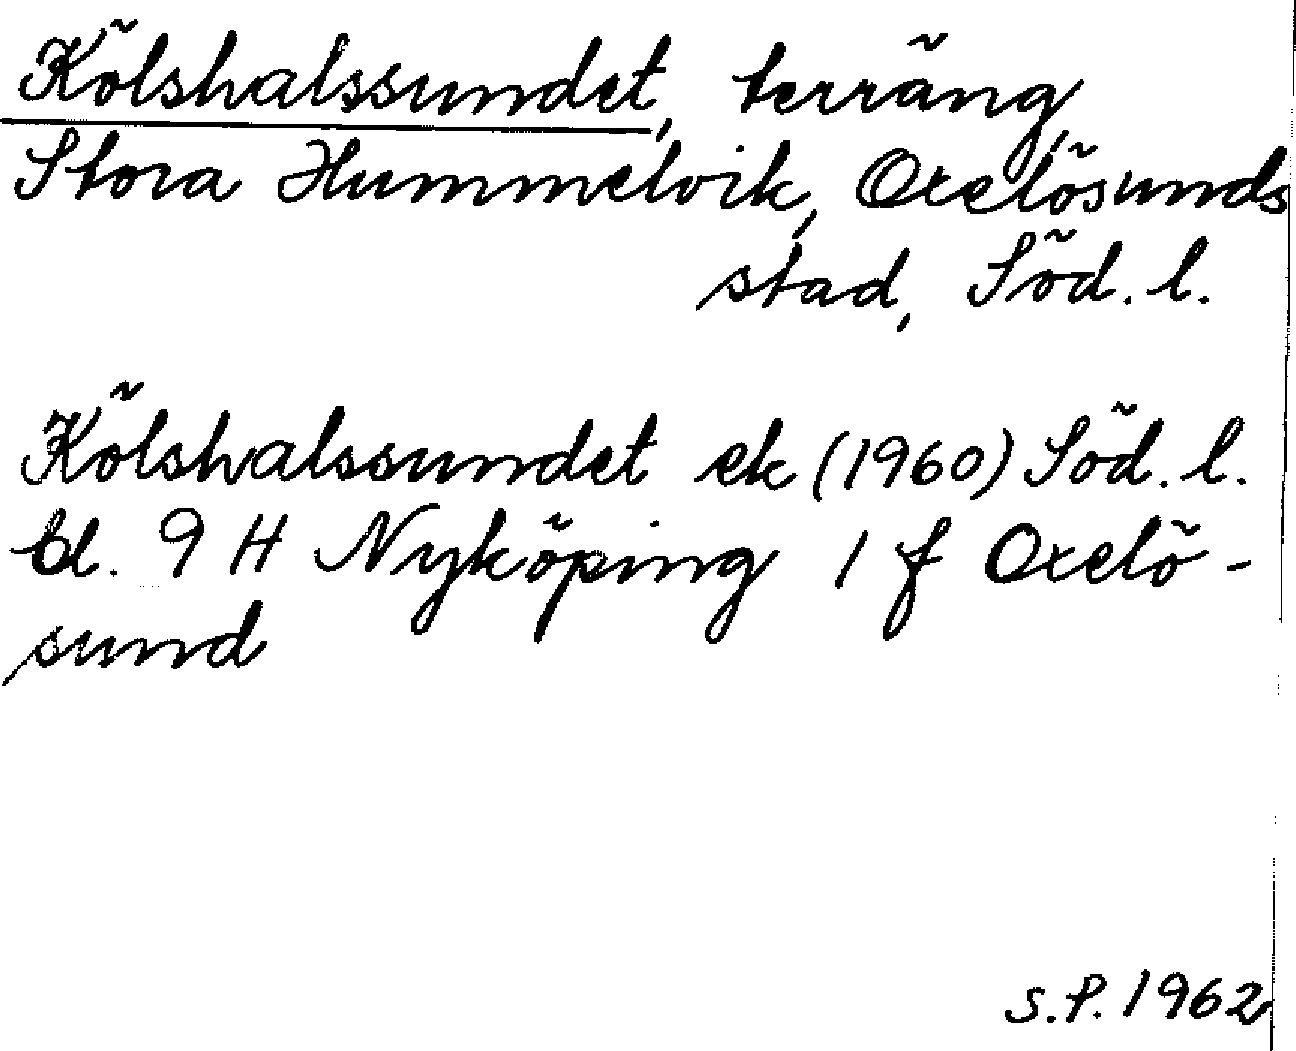 Kölshalssundet, terräng,
Stora Hummelvik, Oxelösunds
stad, Söd. l.
Kölshalssundet ek (1960) Söd. l.
bl. 9 H Nyköping 1 f Oxelö-
sund
S.P. 1962